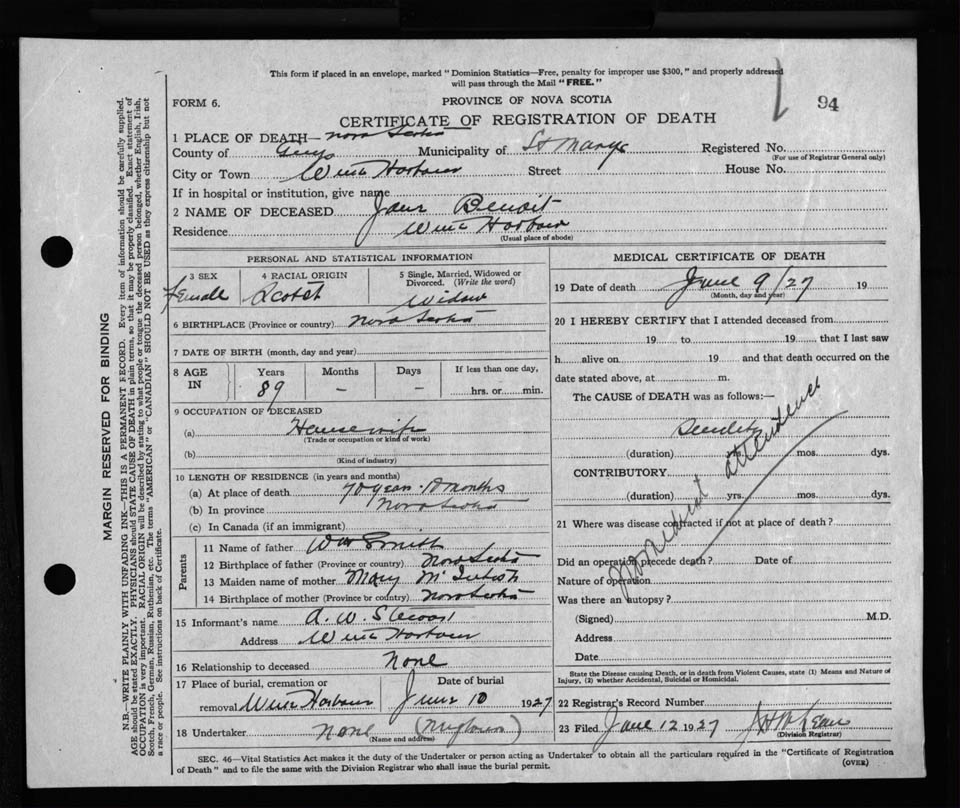 This form if placed in an envelope, marked "Dominion Statistics—Free, penalty for improper use $300," and properly addressed
will pass through the Mail "FREE."
94
FORM 6.
PROVINCE OF NOVA SCOTIA
CERTIFICATE OF REGISTRATION OF DEATH
1 PLACE OF DEATH— Nova Scotia
County of Guys Municipality of St Marys Registered No.
(For use of Registrar General only)
City or Town Wine Harbour Street House No.
If in hospital or institution, give name
2 NAME OF DECEASED Jane Benoit
Residence Wine Harbour
(Usual place of abode)
PERSONAL AND STATISTICAL INFORMATION
3 SEX 4 RACIAL ORIGIN 5 Single, Married, Widowed or
Divorced. (Write the word)
Female Scotch Widow
6 BIRTHPLACE (Province or country) Nova Scotia
7 DATE OF BIRTH (month, day and year)
8 AGE IN Years Months Days If less than one day,
89 – – hrs. or min.
9 OCCUPATION OF DECEASED
(a) Housewife
(Trade or occupation or kind of work)
(b)
(Kind of industry)
10 LENGTH OF RESIDENCE (in years and months)
(a) At place of death 70 years months
(b) In province Nova Scotia
(c) In Canada (if an immigrant)
Parents
11 Name of father Wm Smith
12 Birthplace of father (Province or country) Nova Scotia
13 Maiden name of mother Mary
14 Birthplace of mother (Province or country) Nova Scotia
15 Informant's name A. W.
Address Wine Harbour
16 Relationship to deceased None
17 Place of burial, cremation or Date of burial
removal Wine Harbour June 10 1927
18 Undertaker None
(Name and address)
MEDICAL CERTIFICATE OF DEATH
19 Date of death June 9/27 19
(Month, day and year)
20 I HEREBY CERTIFY that I attended deceased from
19 to 19 that I last saw
h alive on 19 and that death occurred on the
date stated above, at m.
The CAUSE of DEATH was as follows:—
Senility
(duration) yrs. mos. dys.
CONTRIBUTORY
(duration) yrs. mos. dys.
No medical attendance
21 Where was disease contracted if not at place of death?
Did an operation precede death? Date of
Nature of operation
Was there an autopsy?
(Signed) M.D.
Address
Date
State the Disease causing Death, or in death from Violent Causes, state (1) Means and Nature of
Injury, (2) whether Accidental, Suicidal or Homicidal.
22 Registrar's Record Number
23 Filed June 12 1927
(Division Registrar)
SEC. 46—Vital Statistics Act makes it the duty of the Undertaker or person acting as Undertaker to obtain all the particulars required in the "Certificate of Registration
of Death" and to file the same with the Division Registrar who shall issue the burial permit.
(OVER)
MARGIN RESERVED FOR BINDING
N.B.—WRITE PLAINLY WITH UNFADING INK—THIS IS A PERMANENT RECORD. Every item of information should be carefully supplied.
AGE should be stated EXACTLY. PHYSICIANS should STATE CAUSE OF DEATH in plain terms, so that it may be properly classified. Exact statement of
OCCUPATION is very important. RACIAL ORIGIN will be described by stating to what people or tongue the deceased person belonged, whether English, Irish,
Scotch, French, German, Russian, Ruthenian, etc. The terms "AMERICAN" or "CANADIAN" SHOULD NOT BE USED as they express citizenship but not
a race or people. See instructions on back of Certificate.